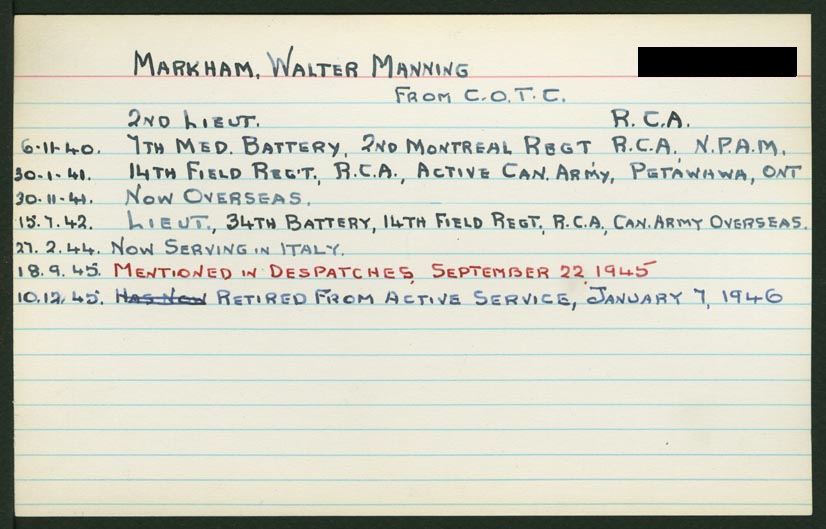 MARKHAM, WALTER MANNING
FROM C.O.T.C.
2ND LIEUT. R.C.A.
6-11-40. 7TH MED. BATTERY, 2ND MONTREAL REGT R.C.A. N.P.A.M.
30-1-41. 14TH FIELD REG'T., R.C.A., ACTIVE CAN. ARMY, PETAWAWA, ONT
30-11-41. NOW OVERSEAS.
15.7.42. LIEUT., 34TH BATTERY, 14TH FIELD REGT., R.C.A, CAN. ARMY OVERSEAS.
27.2.44. NOW SERVING IN ITALY.
18.9.45. MENTIONED IN DESPATCHES, SEPTEMBER 22, 1945
10.12.45. HAS NOW RETIRED FROM ACTIVE SERVICE, JANUARY 7, 1946